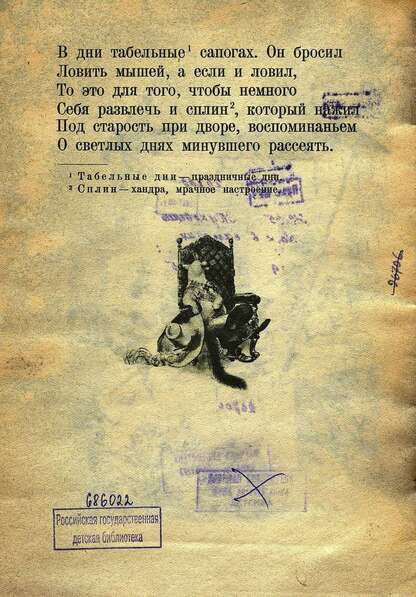 В дни табельные¹ сапогах. Он бросил
Ловить мышей, а если и ловил,
То это для того, чтобы немного
Себя развлечь и сплин², который нажил
Под старость при дворе, воспоминаньем
О светлых днях минувшего рассеять.
¹ Табельные дни — праздничные дни.
² Сплин — хандра, мрачное настроение.
686022
Российская государственная
детская библиотека